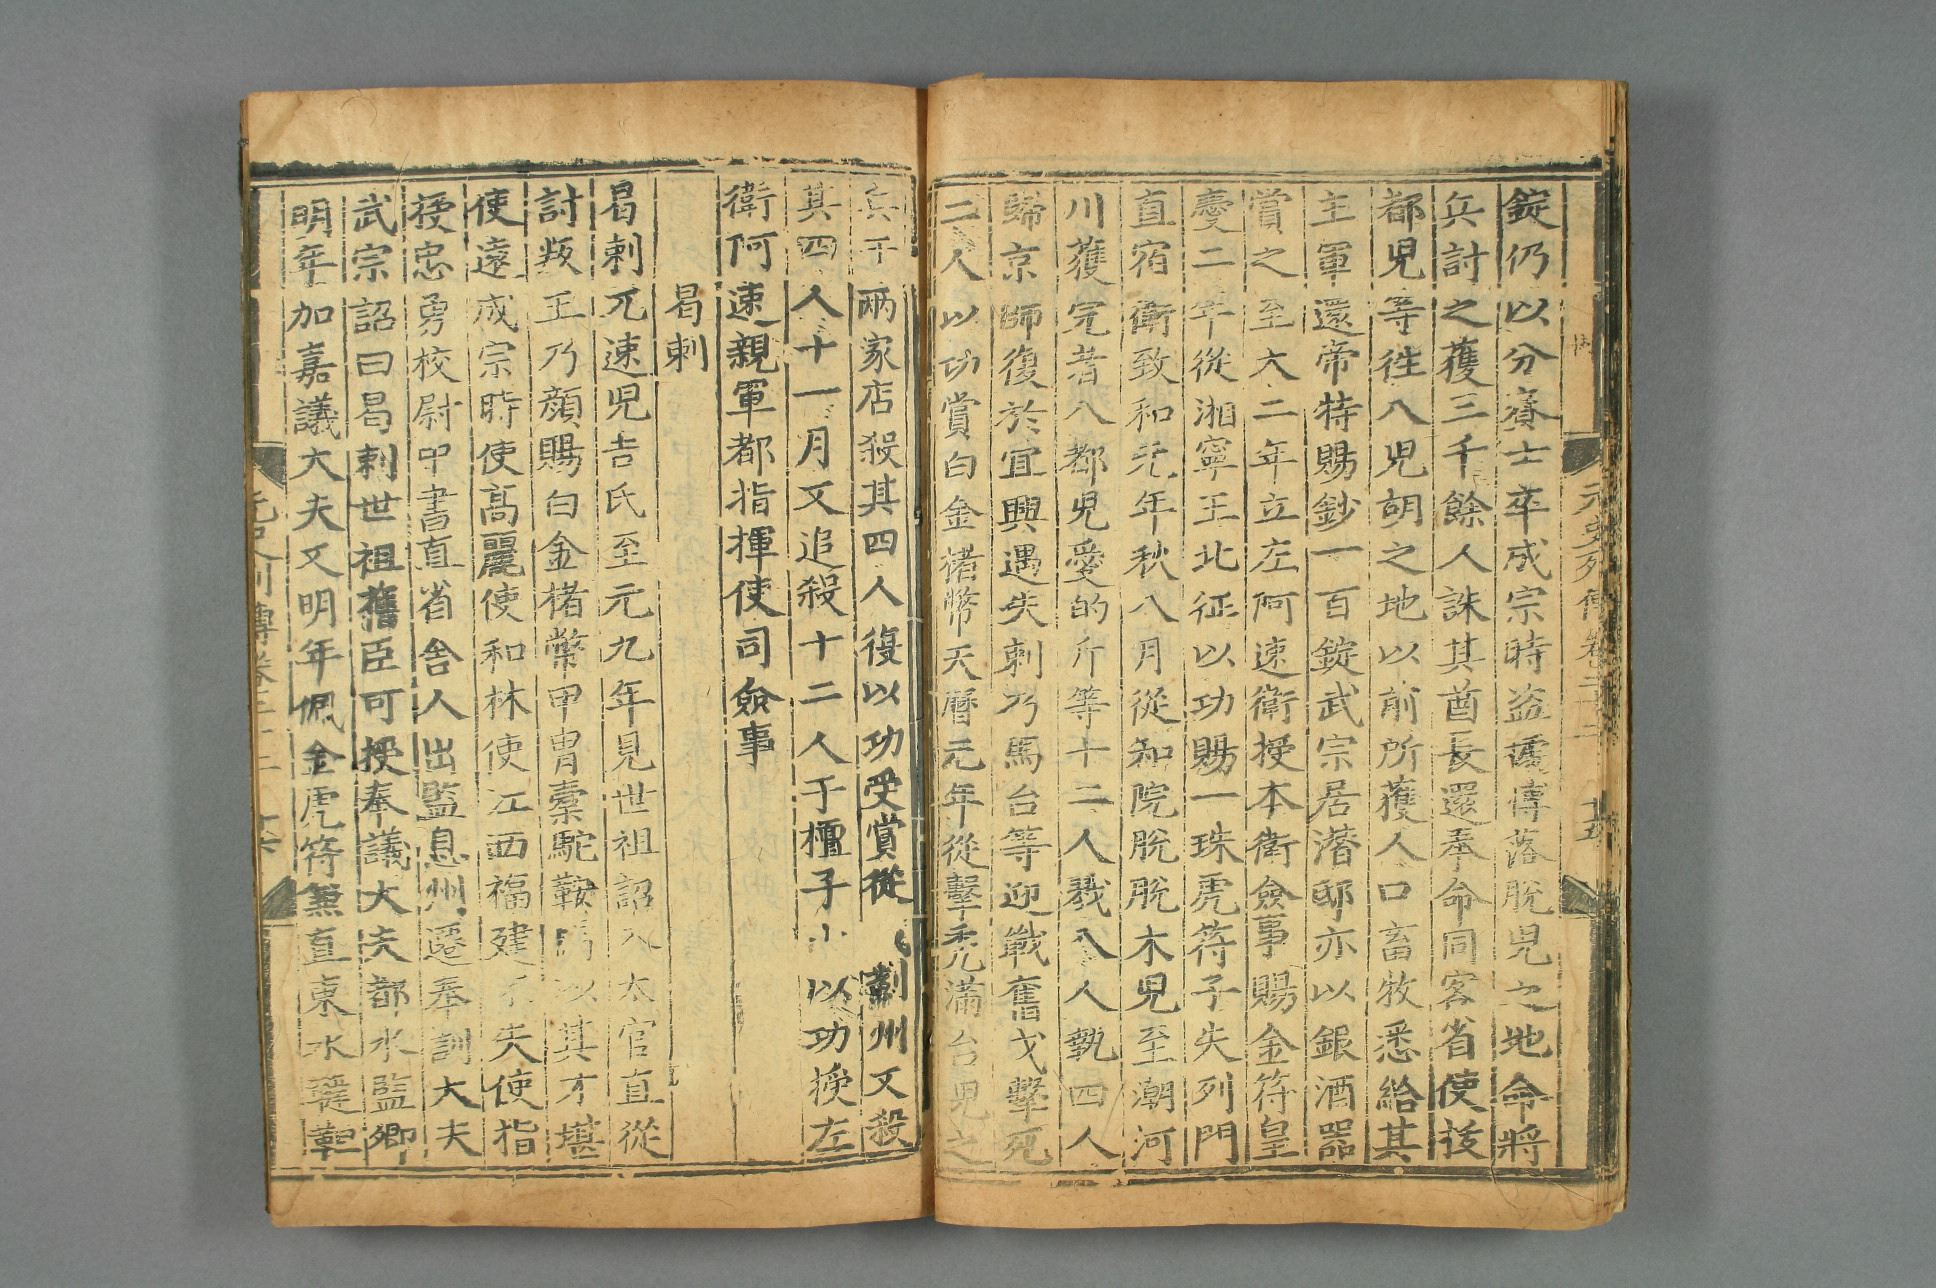 元史列傳卷二十二 十五
錠仍以分賚士卒成宗時盗竊傳落脫兒之地命將
兵討之獲三千餘人誅其酋長還奉命同客省使拔
都兒等往八兒胡之地以前所獲人口畜牧悉給其
主軍還帝特賜鈔一百錠武宗居潛邸亦以銀酒器
賞之至大二年立左阿速衛授本衛僉事賜金符皇
慶二年從湘寧王北征以功賜一珠虎符子失列門
直宿衛致和元年秋八月從知院脫脫木兒至潮河
川獲完者八都兒愛的斤等十二人戮八人執四人
歸京師復於宜興遇失剌乃馬台等迎戰奮戈擊死
二人以功賞白金楮幣天曆元年從擊禿滿台兒之
兵于兩家店殺其四人復以功受賞從 薊州又殺
其四人十一月又追殺十二人于檀子 以功授左
衛阿速親軍都指揮使司僉事
曷剌
曷剌兀速兒吉氏至元九年見世祖詔入太官直從
討叛王乃顏賜白金楮幣甲胄橐駝鞍 以其才堪
使遠成宗時使髙麗使和林使江西福建 失使指
授忠勇校尉中書直省舍人出監息州遷奉訓大夫
武宗詔曰曷剌世祖舊臣可授奉議大夫都水監卿
明年加嘉議大夫又明年佩金虎符兼直東水韃靼
元史列傳卷二十二 十六